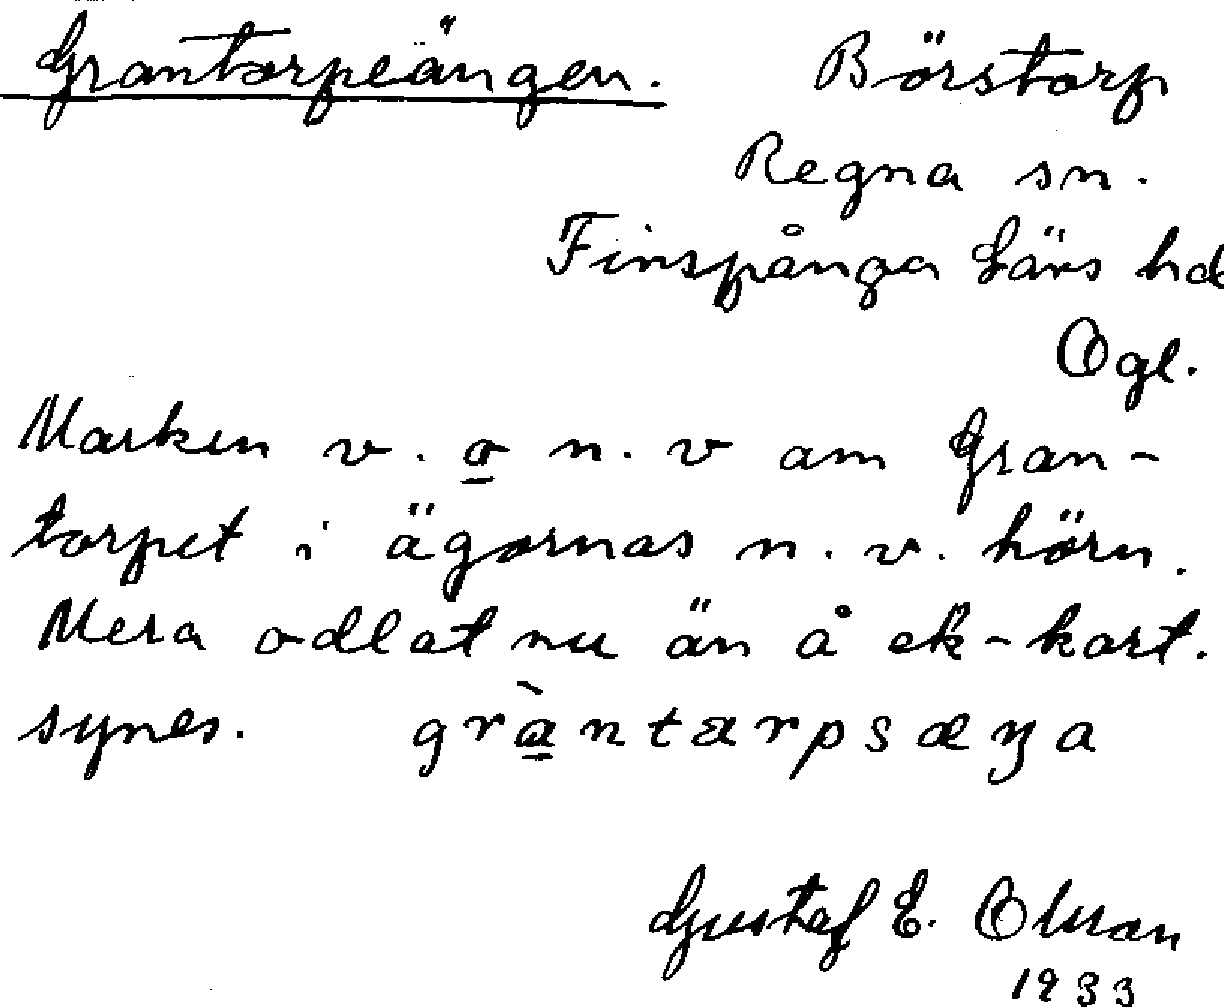 Grantorpeängen. Börstorp
Regna sn.
Finspånga Läns hd
Ögl.
Marken v. o n. v om Gran-
torpet i ägornas n. v. hörn.
Mera odlat nu än å ek-kart.
synes. gràntarpsæŋa
Gustaf E. Olsson
1933